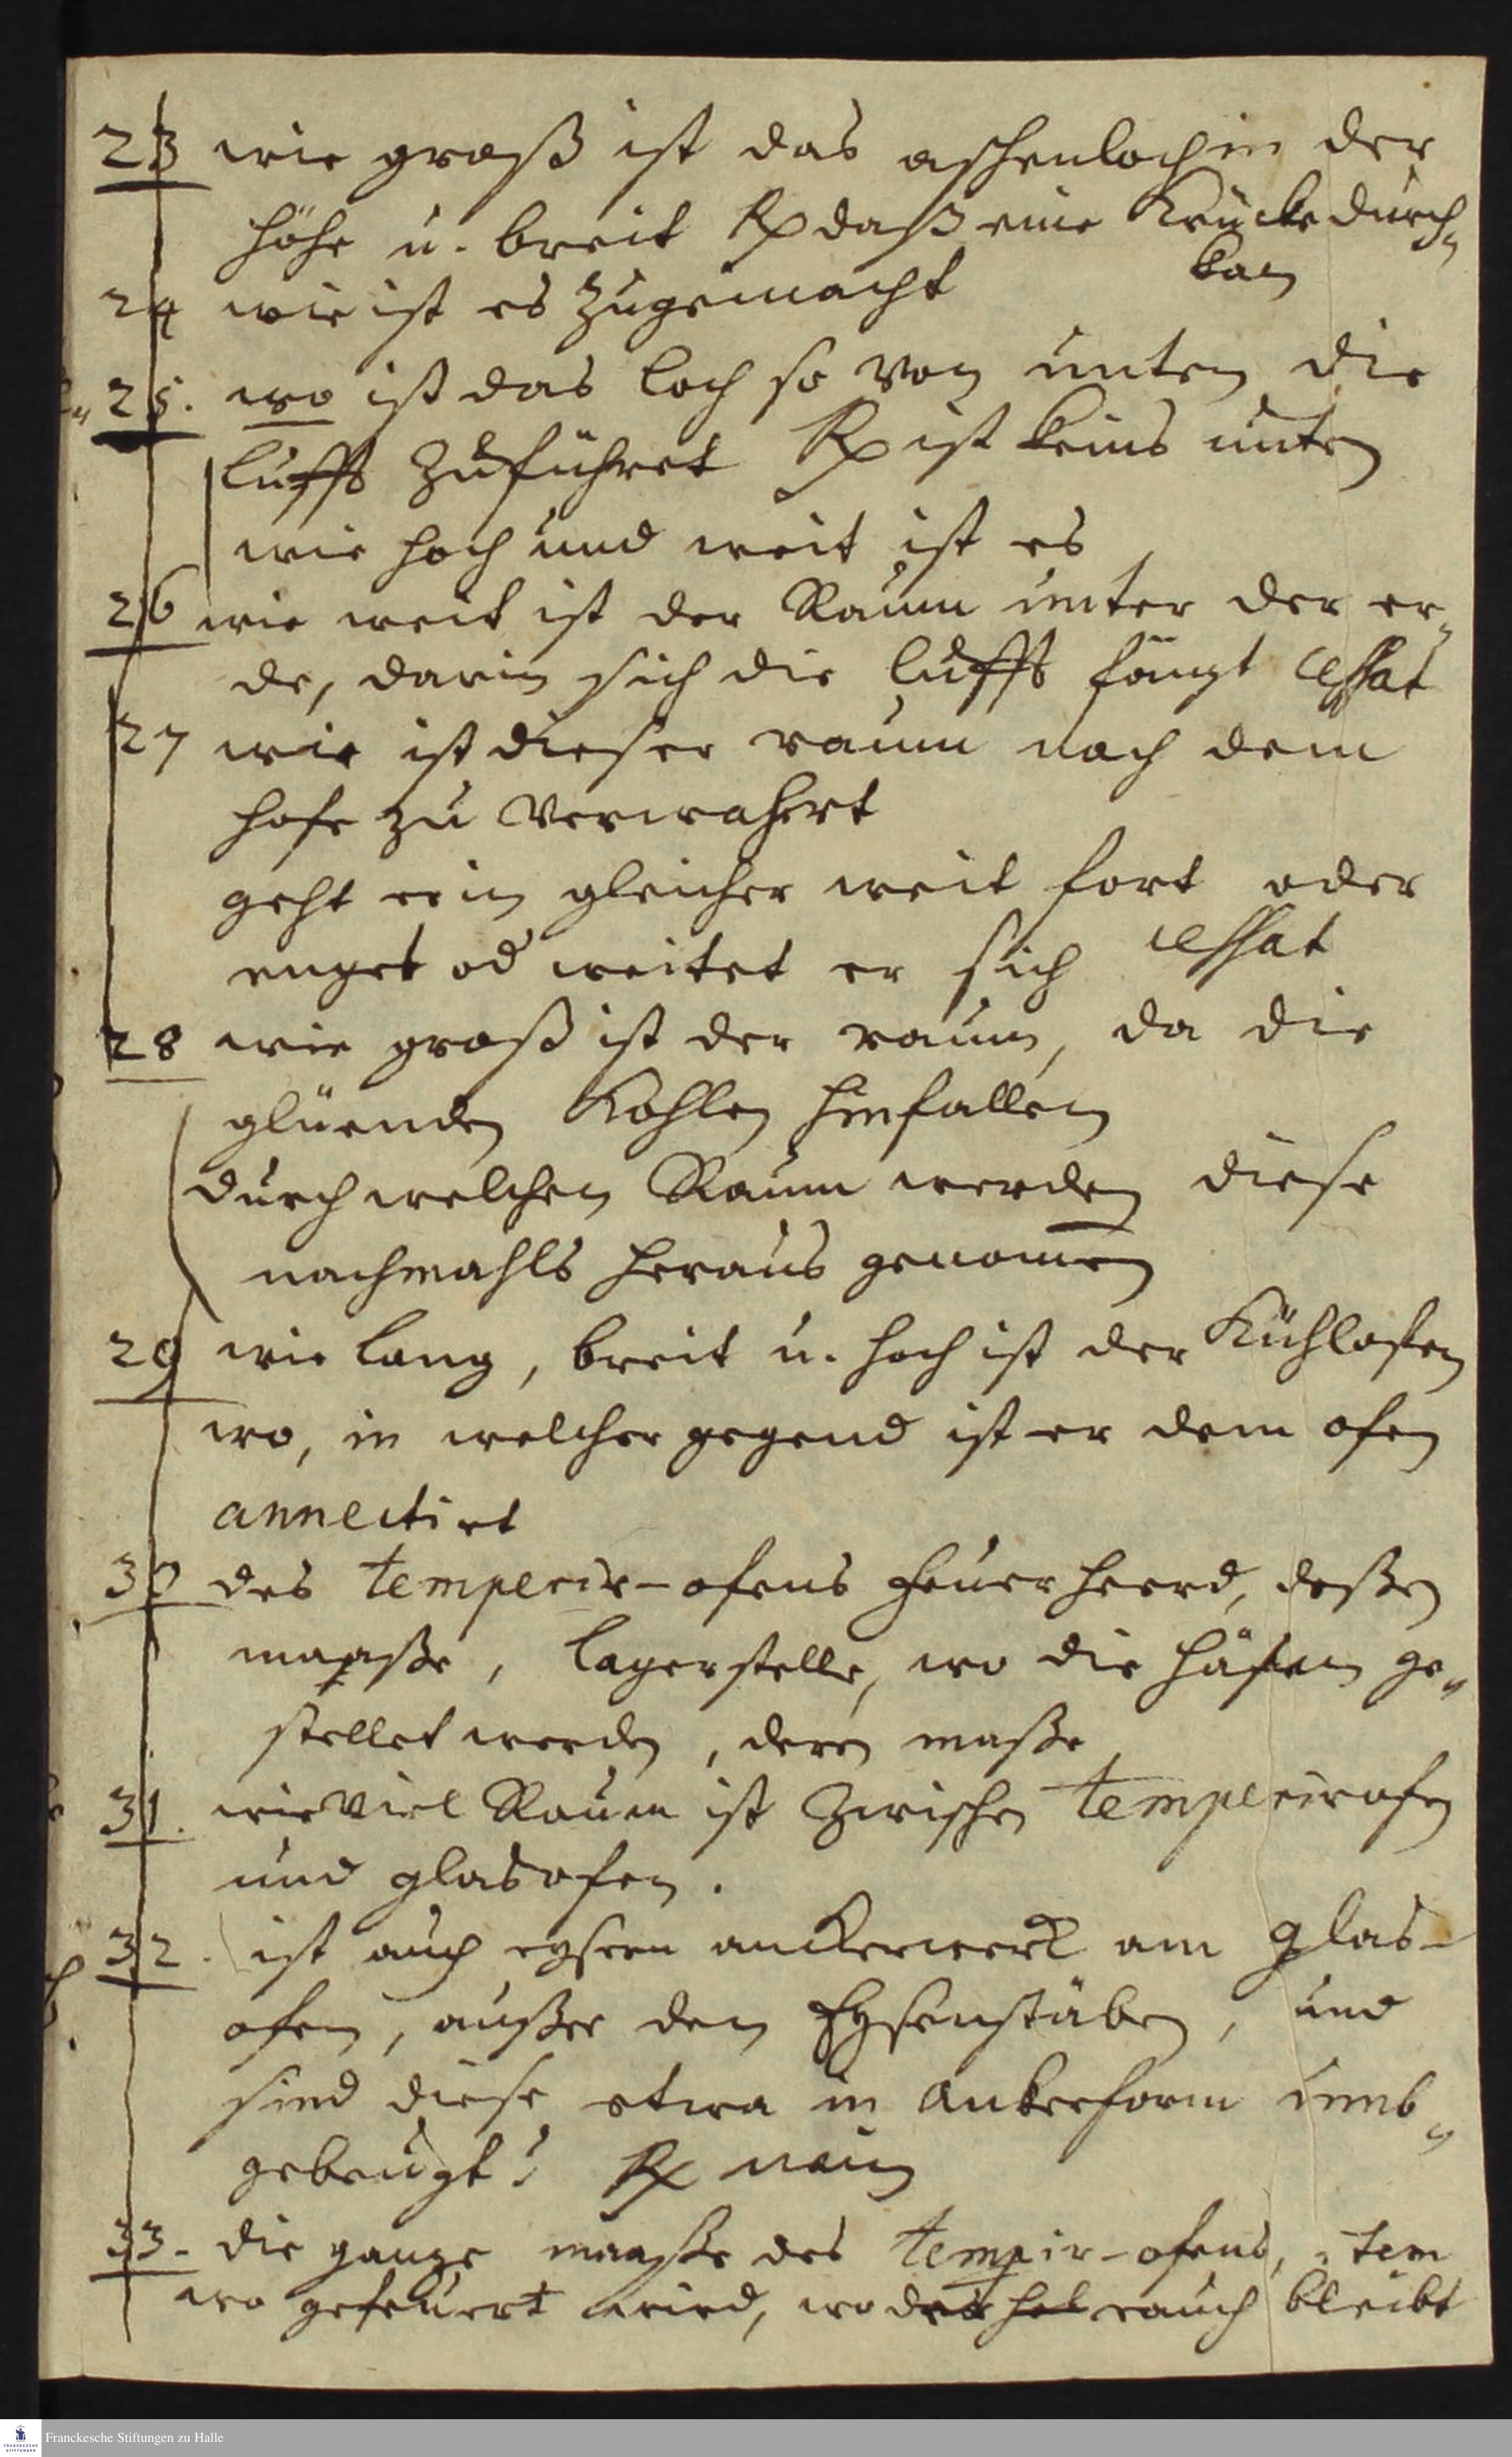 23 wie groß ist das aschenloch in der
höhe u. breit Rp daß eine Krücke durch
kan
24 wie ist es zugemacht
25. wo ist das loch so von unten die
lufft zuführet Rp ist keins unten
wie hoch und weit ist es
26 wie weit ist der Raum unter der er-
de, darin sich die lufft fängt cessat
27 wie ist dieser raum nach dem
hofe zu verwahrt
geht er in gleicher weit fort oder
enget od weitet er sich cessat
28 wie groß ist der raum, da die
glüenden Kohlen hinfallen
durch welchen Raum werden diese
nachmahls heraus genomen
29 wie lang, breit u. hoch ist der Kühlofen
wo, in welcher gegend ist er dem ofen
annectirt
30 des temperir-ofens feuerheerd, deßen
maaße, lagerstelle, wo die häfen ge-
stellet werden, deren maße
31. wie viel Raum ist zwischen temperirofen
und glasofen.
32. ist auch eysern anckerwerck am glas-
ofen, außer den Eysenstäben, und
sind diese etwa in ankerform umb-
gebeugt? Rp nein
33. die ganze maaße des tempir-ofens, item
wo gefeuert wird, wo der rauch bleibt
Franckesche Stiftungen zu Halle